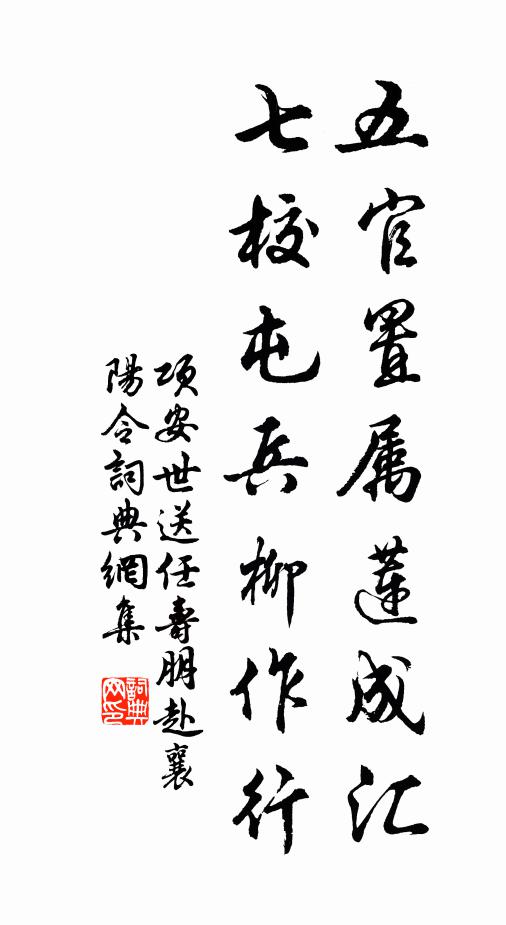 五官置属莲成汇
七校屯兵柳作行
项安世送任壽朋赴襄
陽令詞典網集
詞典
网印